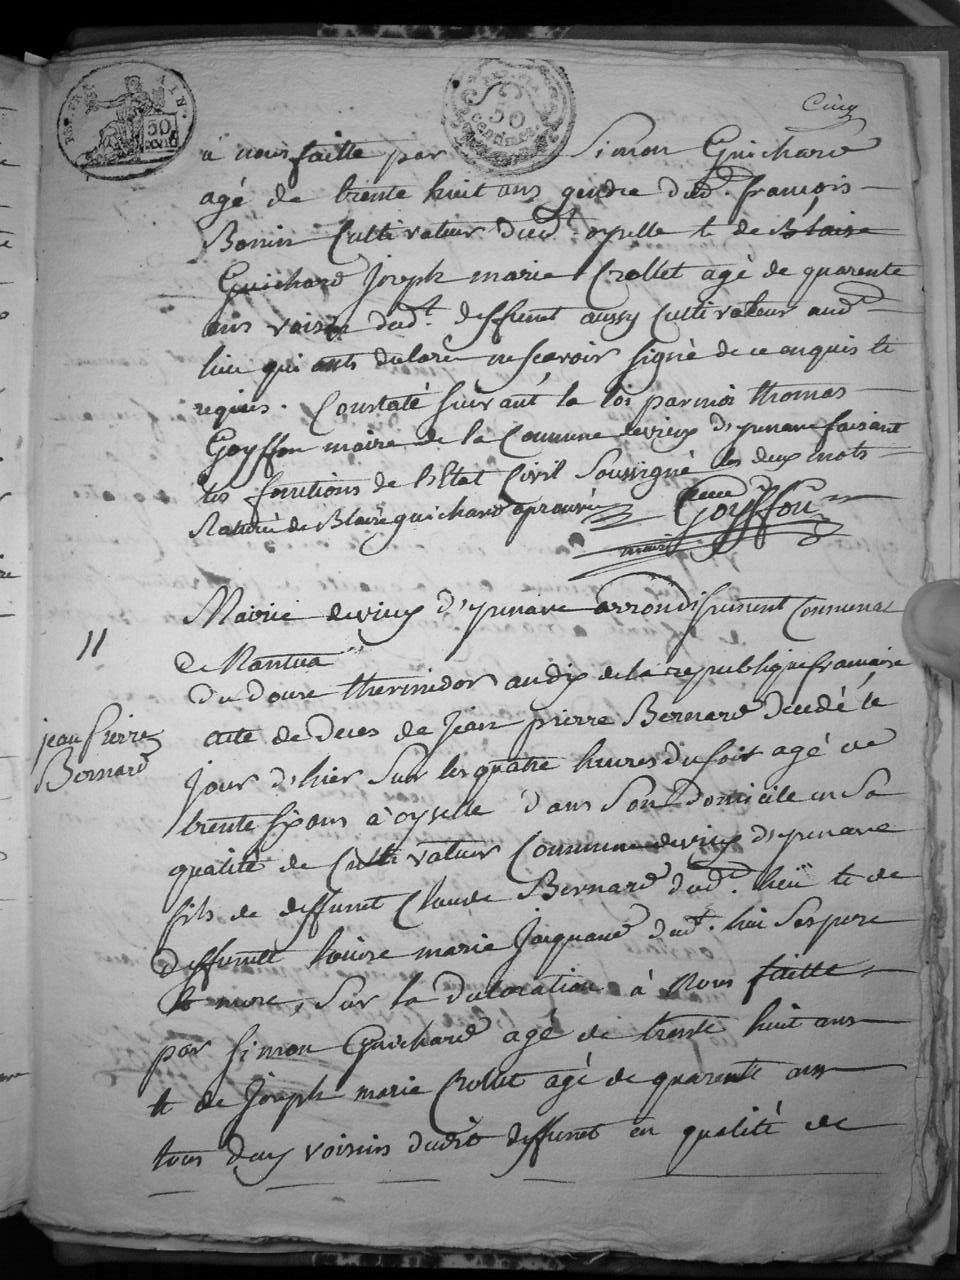 REP. FRA. AIN.
50
50
centimes
Cinq
a nous faitte par Simon Guichard
agé de trente huit ans gendre dud. françois
Bonin Cultivateur dud.t oyselle et de Blaise
Guichard Joseph marie Crollet agé de quarente
ans voisin dud.t deffunct aussy Cultivateur aud.
lieu qui onts declaré ne scavoir signé de ce enquis et
requis. Constaté suivant la loi par moi thomas
Goyffon maire de la Commune devieux d'yzenave faisant
les fonctions de l'Etat Civil Soussigné les deux mots
Raturé de Blaise guichard aprouvé
Goyffon
maire
11
Mairie devieux d'yzenave arrondissement Communal
de Nantua
Du douze thermidor an dix de la republique francaise
jean Pierre
Bernard
acte de deces de Jean pierre Bernard decedé le
Jour d'hier Sur les quatre heures du soir agé de
trente six ans a oyselle dans Son Domicile en Sa
qualité de Cultivateur Commune devieux d'yzenave
fils de deffunct Claude Bernard dud.t lieu et de
deffuncte louise marie Jacquand dud.t lieu Ses pere
et mere, Sur la declaration à Nous faitte
par Simon Guichard agé de trente huit ans
et de Joseph marie Crollet agé de quarente ans
tous deux voisins dudit deffunct en qualité de